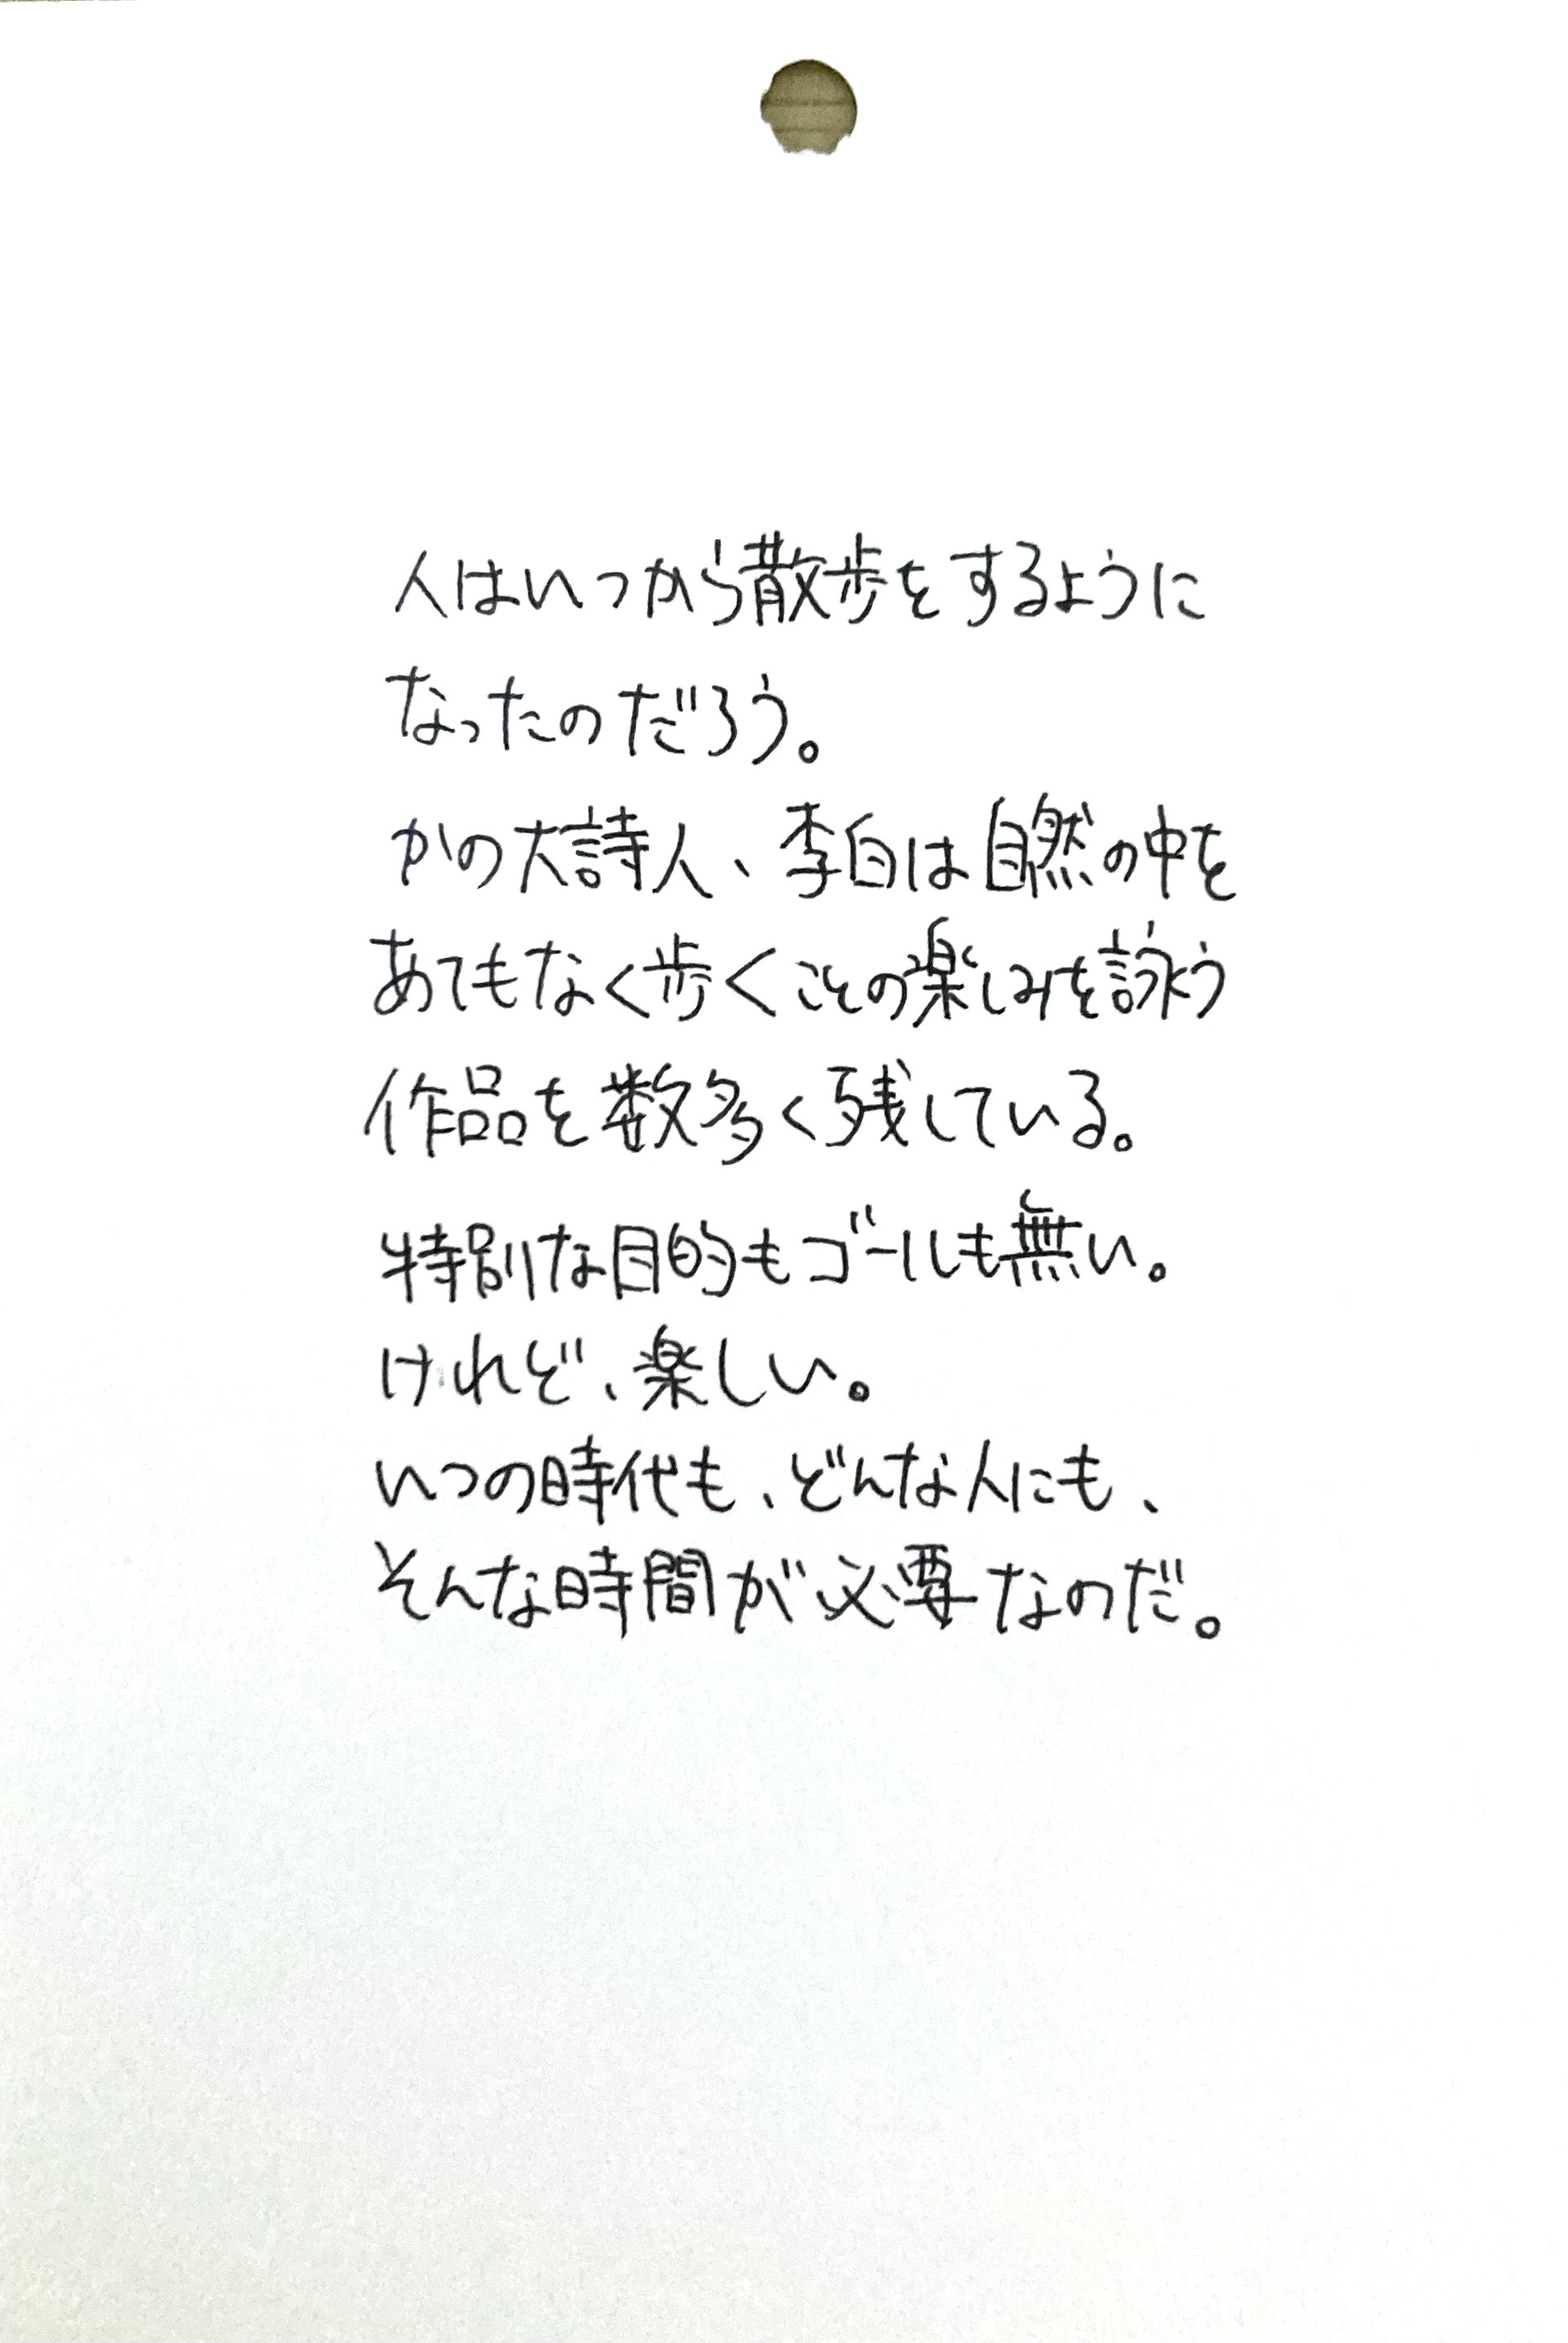 人はいつから散歩をするように
なったのだろう。
かの大詩人、李白は自然の中を
あてもなく歩くことの楽しみを詠う
作品を数多く残している。
特別な目的もゴールも無い。
けれど、楽しい。
いつの時代も、どんな人にも、
そんな時間が必要なのだ。